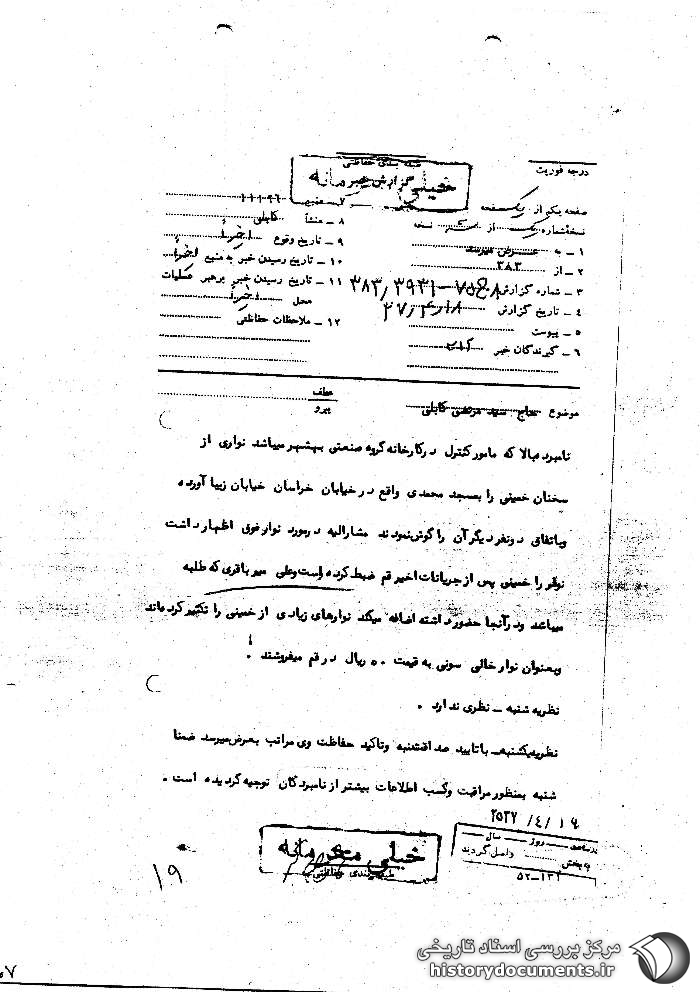 درجه فوریت
طبقه بندی حفاظتی
خیلی محرمانه
گزارش خبر
صفحه یکم از یک صفحه
نسخه شماره یک از نسخه
۱ ـ به عرض میرسد
۲ ـ از ۳۸۳
۳ ـ شماره گزارش
۴ ـ تاریخ گزارش
۵ ـ پیوست
۶ ـ گیرندگان خبر
۷ ـ منبع ۱۱۱۲۶
۸ ـ منشأ کابلی
۹ ـ تاریخ وقوع اخیراً
۱۰ ـ تاریخ رسیدن خبر به منبع اخیراً
۱۱ ـ تاریخ رسیدن خبر برهبر عملیات
محل اخیراً
۱۲ ـ ملاحظات حفاظتی
موضوع حاج سید مرتضی کابلی
عطف
پیرو
نامبرده بالا که مامور کنترل در کارخانه گروه صنعتی بهشهر میباشد نواری از
سخنان خمینی را بمسجد محمدی واقع در خیابان خراسان خیابان زیبا آورده
وباتفاق دونفر دیگر آن را گوش نمودند مشارالیه در مورد نوار فوق اظهار داشت
نوار را خمینی پس از جریانات اخیر قم ضبط کرده است وعلی میرباقری که طلبه
میباشد ودر آنجا حضور داشته اضافه میکند نوارهای زیادی از خمینی را تکثیر کرده اند
وبعنوان نوار خالی سونی به قیمت ۵۰ ریال در قم میفروشند .
نظریه شنبه ـ نظری ندارد .
نظریه یکشنبه ـ با تایید صداقت شنبه وتاکید حفاظت وی مراتب بعرض میرسد ضمنا
شنبه بمنظور مراقبت وکسب اطلاعات بیشتر از نامبردگان توجیه گردیده است .
۱۹ /۴/ ۲۵۳۷
در ساعت روز سال
به بخش واصل گردید
۵۲ـ۱۳۱
خیلی محرمانه
طبقه بندی حفاظتی
۱۹
مرکز بررسی اسناد تاریخی
historydocuments.ir